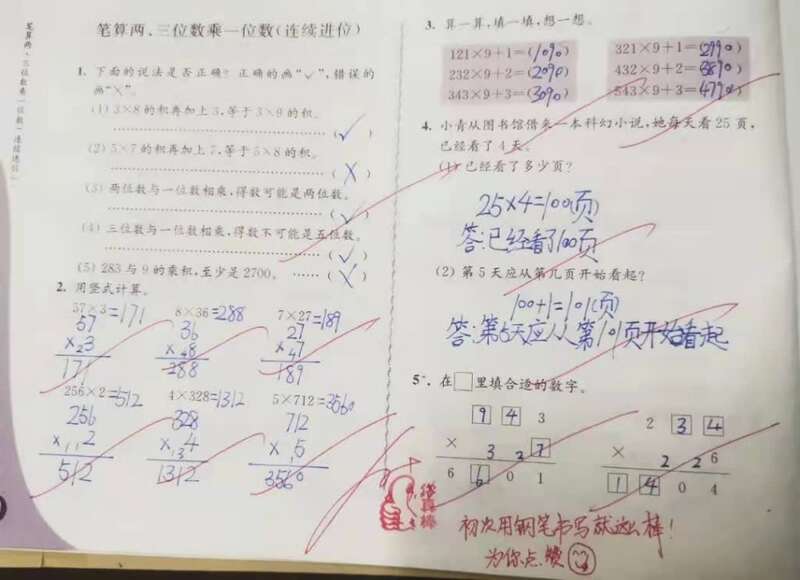 笔算两、三位数乘一位数（连续进位）
笔算两、三位数乘一位数（连续进位）
1. 下面的说法是否正确？正确的画“✓”，错误的
画“×”。
(1) 3×8的积再加上3，等于3×9的积。
(✓)
(2) 5×7的积再加上7，等于5×8的积。
(X)
(3) 两位数与一位数相乘，得数可能是两位数。
(✓)
(4) 三位数与一位数相乘，得数不可能是五位数。
(✓)
(5) 283与9的乘积，至少是2700。 (X)
2. 用竖式计算。
57×3=171 8×36=288 7×27=189
57 36 27
×23 ×48 ×47
171 288 189
256×2=512 4×328=1312 5×712=3560
256 328 712
×112 ×34 ×15
512 1312 3560
3. 算一算，填一填，想一想。
121×9+1=(1090) 321×9+1=(2890)
232×9+2=(2090) 432×9+2=(3890)
343×9+3=(3090) 543×9+3=(4890)
4. 小青从图书馆借来一本科幻小说，她每天看25页，
已经看了4天。
(1) 已经看了多少页？
25×4=100(页)
答：已经看了100页
(2) 第5天应从第几页开始看起？
100+1=101(页)
答：第5天应从第101页开始看起
5*. 在□里填合适的数字。
9 4 3 2 3 4
× 3 2 7 × 2 2 6
6 6 0 1 1 4 0 4
A+
你真棒
初次用钢笔书写就这么棒！
为你点赞